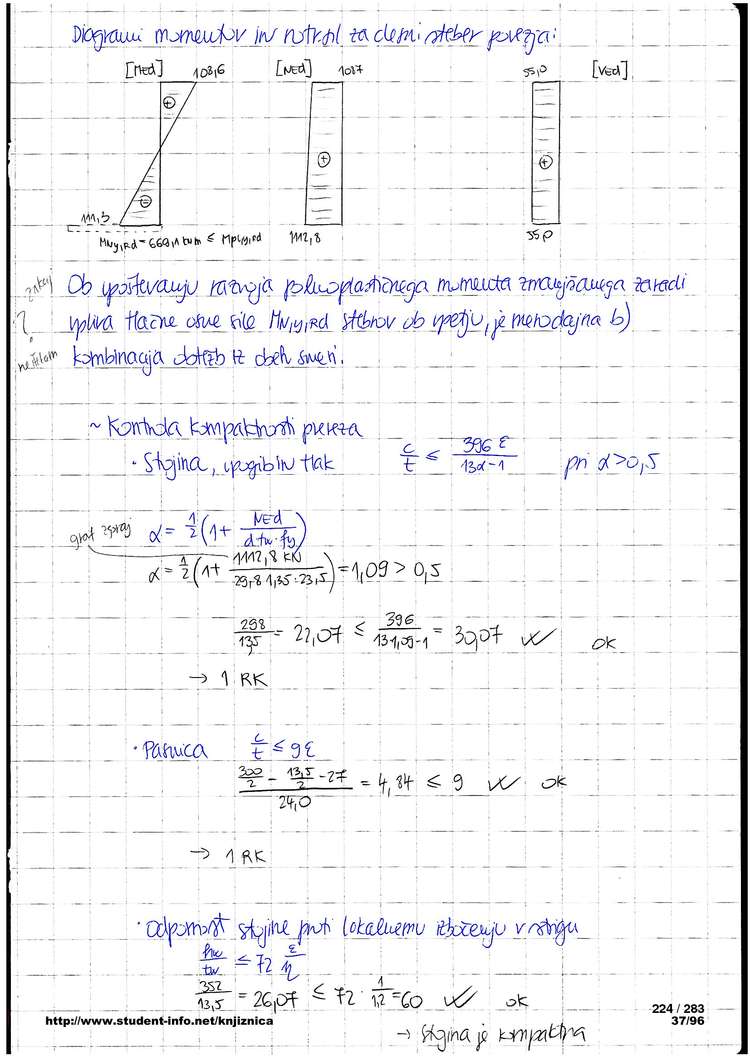 Diagrami momentov in notr.sil za desni steber povezja:
[MEd] 108,6 [NEd] 1087 55,0 [VEd]
⊕ ⊕ ⊕
⊖
111,3
MNy,Rd = 669,1 kNm ≤ Mpl,y,Rd 1112,8 55,0
zakaj Ob upoštevanju razvoja polnoplastičnega momenta zmanjšanega zaradi
? vpliva tlačne osne sile MN,y,Rd stebrov ob vpetju, je merodajna b)
ne štekam kombinacija obtežb iz obeh smeri.
~ Kontrola kompaktnosti prereza
· Stojina, upogib in tlak c/t ≤ 396 ε / 13α-1 pri α>0,5
graf zgoraj α = 1/2 (1+ NEd / d·tw·fy)
α = 1/2 (1+ 1112,8 kN / 29,8·1,35·23,5) = 1,09 > 0,5
298/13,5 = 22,07 ≤ 396 / 13·1,09-1 = 30,07 ok
→ 1 RK
· Pasnica c/t ≤ 9ε
300/2 - 13,5/2 - 27 / 24,0 = 4,84 ≤ 9 ok
→ 1 RK
· Odpornost stojine proti lokalnemu izbočenju v strigu
hw/tw ≤ 72 ε/η
352/13,5 = 26,07 ≤ 72 · 1/1,2 = 60 ok
→ stojina je kompaktna
224 / 283
http://www.student-info.net/knjiznica 37/96